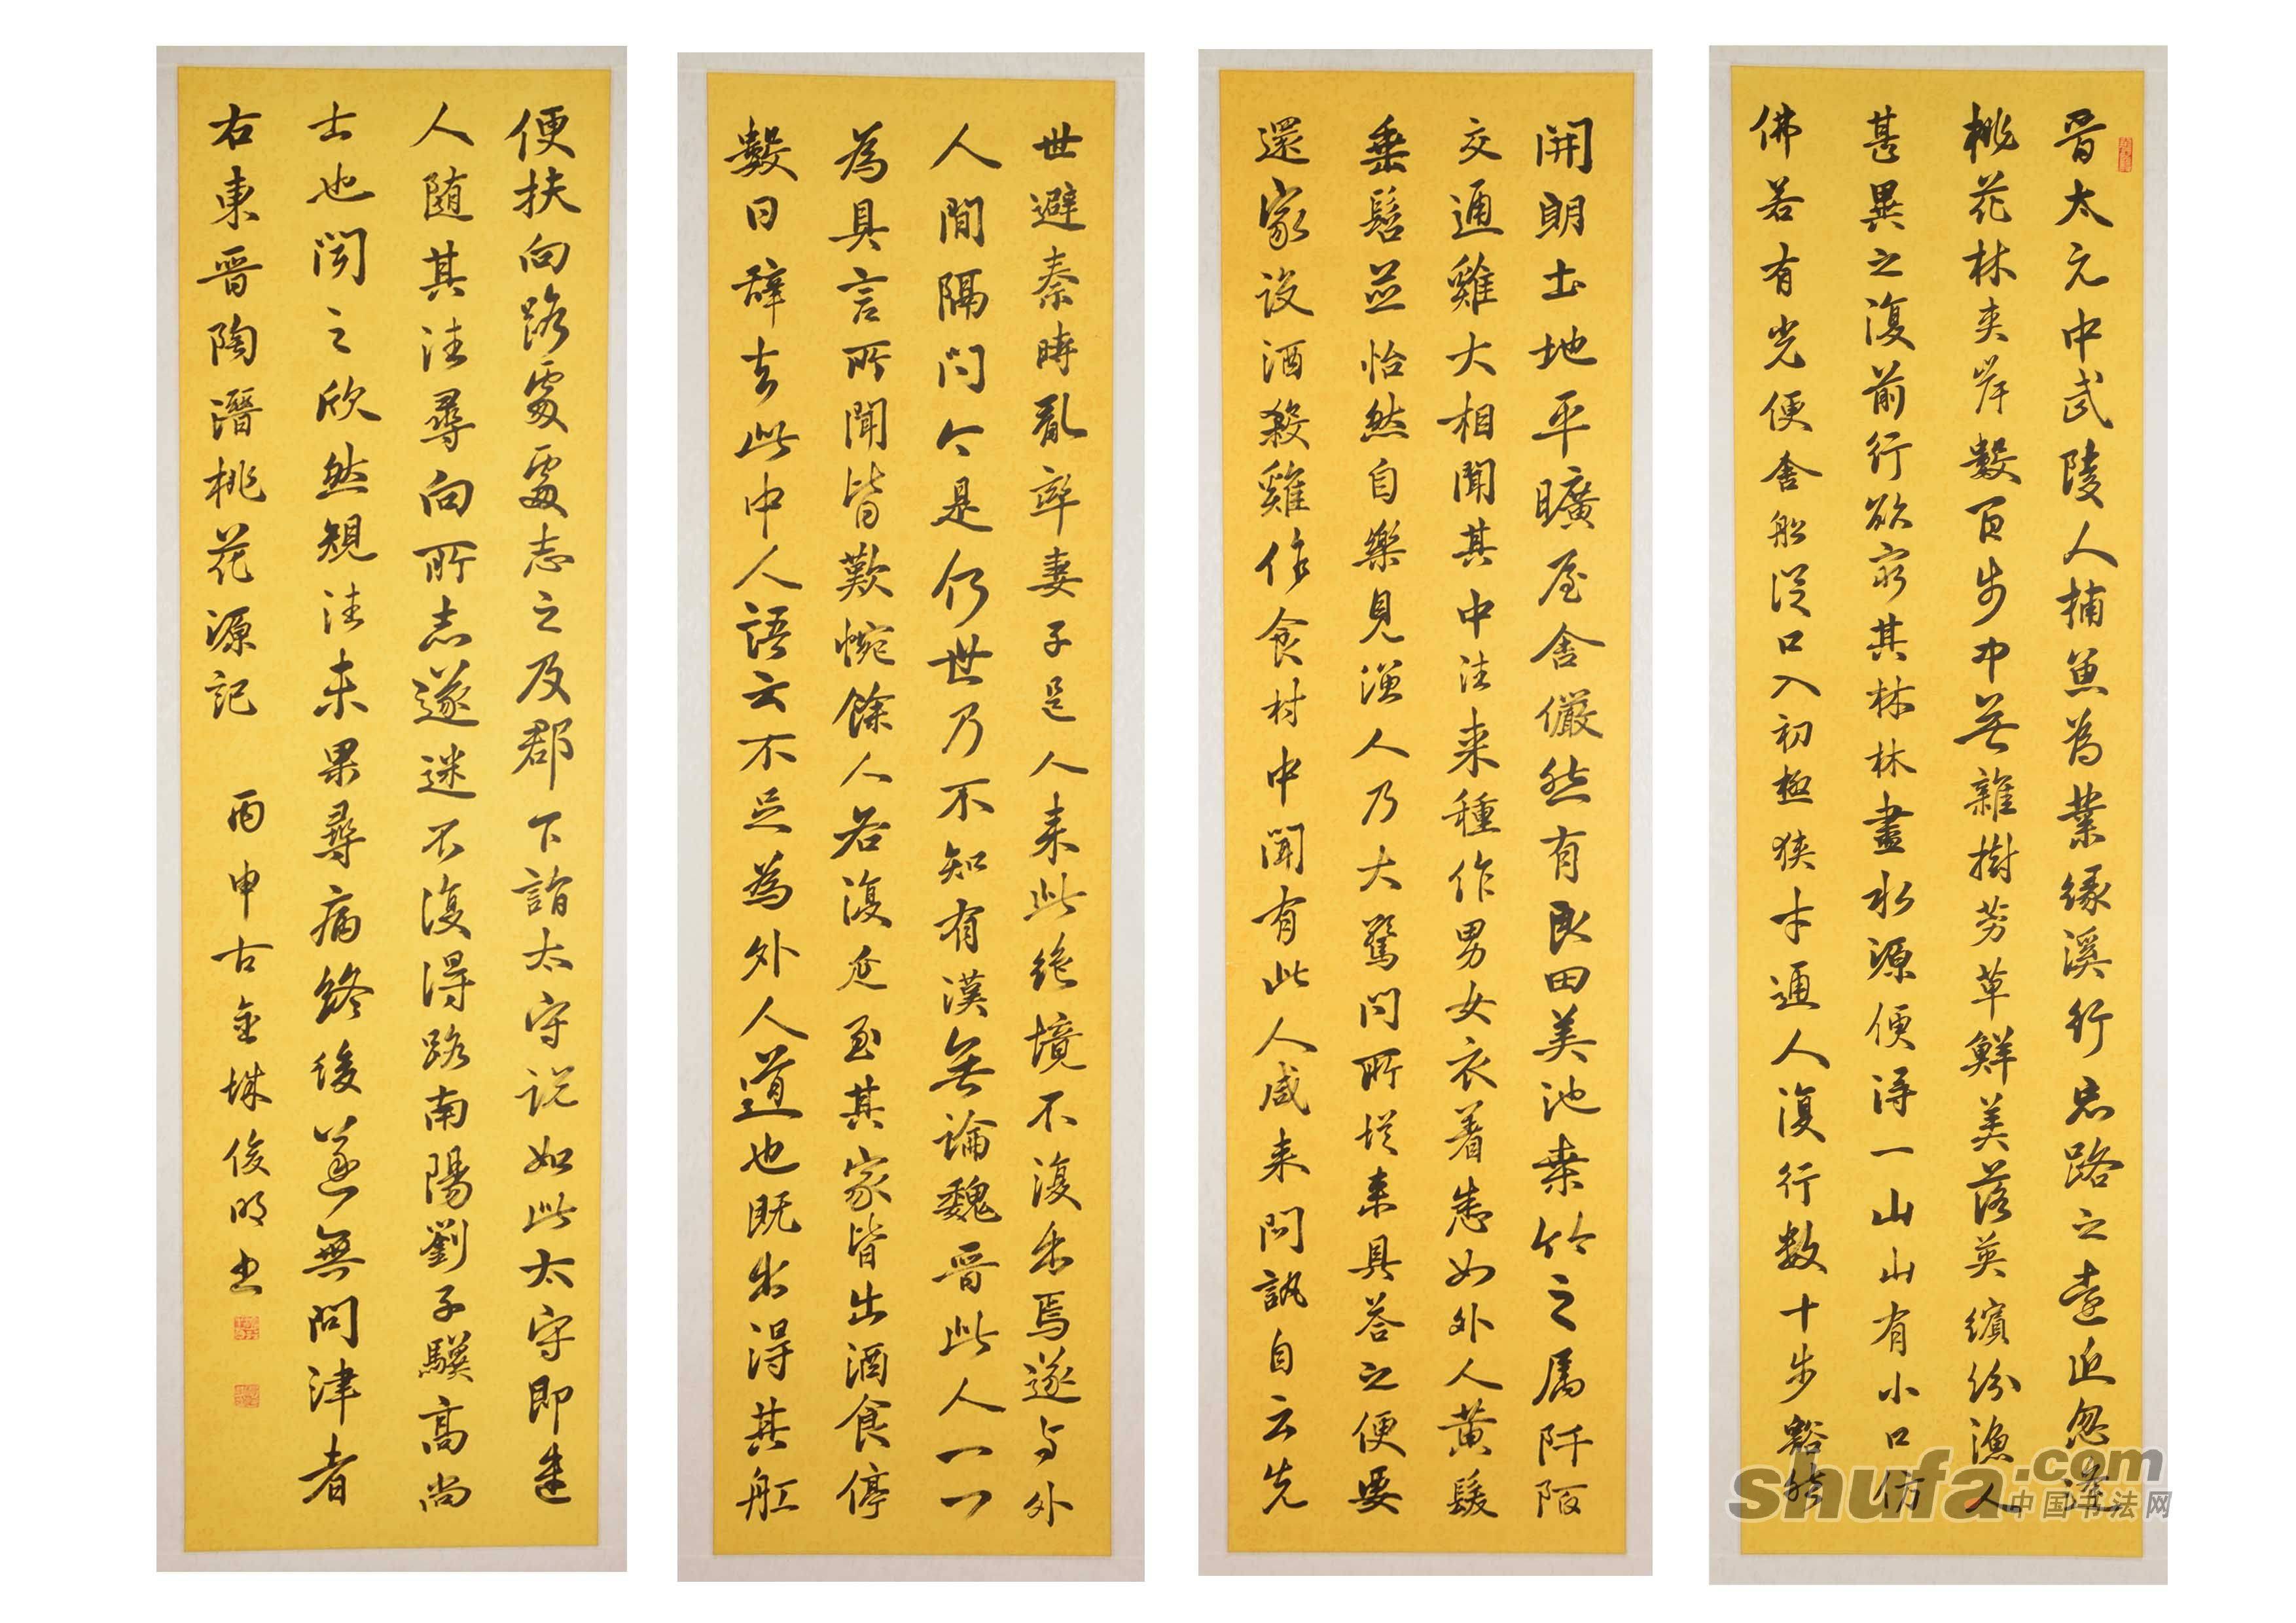 晋太元中武陵人捕魚為業緣溪行忘路之遠近忽逢
桃花林夾岸數百步中無雜樹芳草鮮美落英繽紛漁人
甚異之復前行欲窮其林林盡水源便得一山山有小口仿
佛若有光便舍船從口入初極狹才通人復行数十步豁然
開朗土地平曠屋舍儼然有良田美池桑竹之属阡陌
交通雞犬相聞其中往来種作男女衣着悉如外人黄髮
垂髫並怡然自樂見漁人乃大驚問所從来具答之便要
還家设酒殺雞作食村中聞有此人咸来問訊自云先
世避秦時亂率妻子邑人来此絶境不復出焉遂与外
人間隔问今是何世乃不知有漢無論魏晋此人一一
為具言所聞皆歎惋餘人各復延至其家皆出酒食停
數日辞去此中人語云不足為外人道也既出得其舡
便扶向路處處志之及郡下詣太守说如此太守即遣
人随其往尋向所志遂迷不復得路南陽劉子驥高尚
士也闻之欣然規往未果尋病終後遂無問津者
右東晋陶潛桃花源記 丙申古金城俊明书
shufa.com
中国书法网